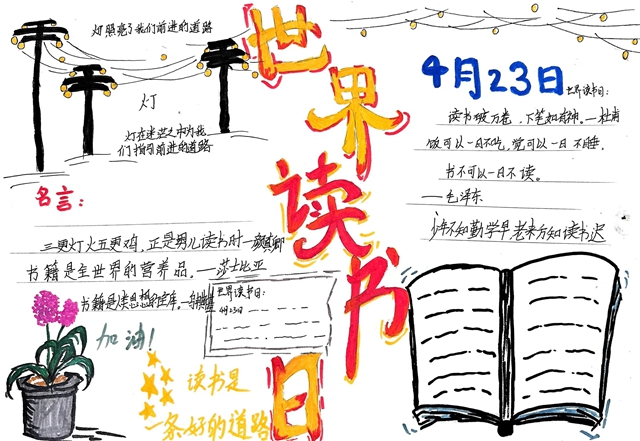 灯照亮了我们前进的道路
灯
灯在迷茫之中为我
们指明前进的道路
世界读书日
4月23日
世界读书日:
读书破万卷,下笔如有神。—杜甫
饭可以一日不吃,觉可以一日不睡,
书不可以一日不读。
——毛泽东
少年不知勤学早 老来方知读书迟
名言:
三更灯火五更鸡,正是男儿读书时—颜真卿
书籍是全世界的营养品。——莎士比亚
书籍是人类思想的宝库。
世界读书日:
4月23日
加油!
读书是
一条好的道路